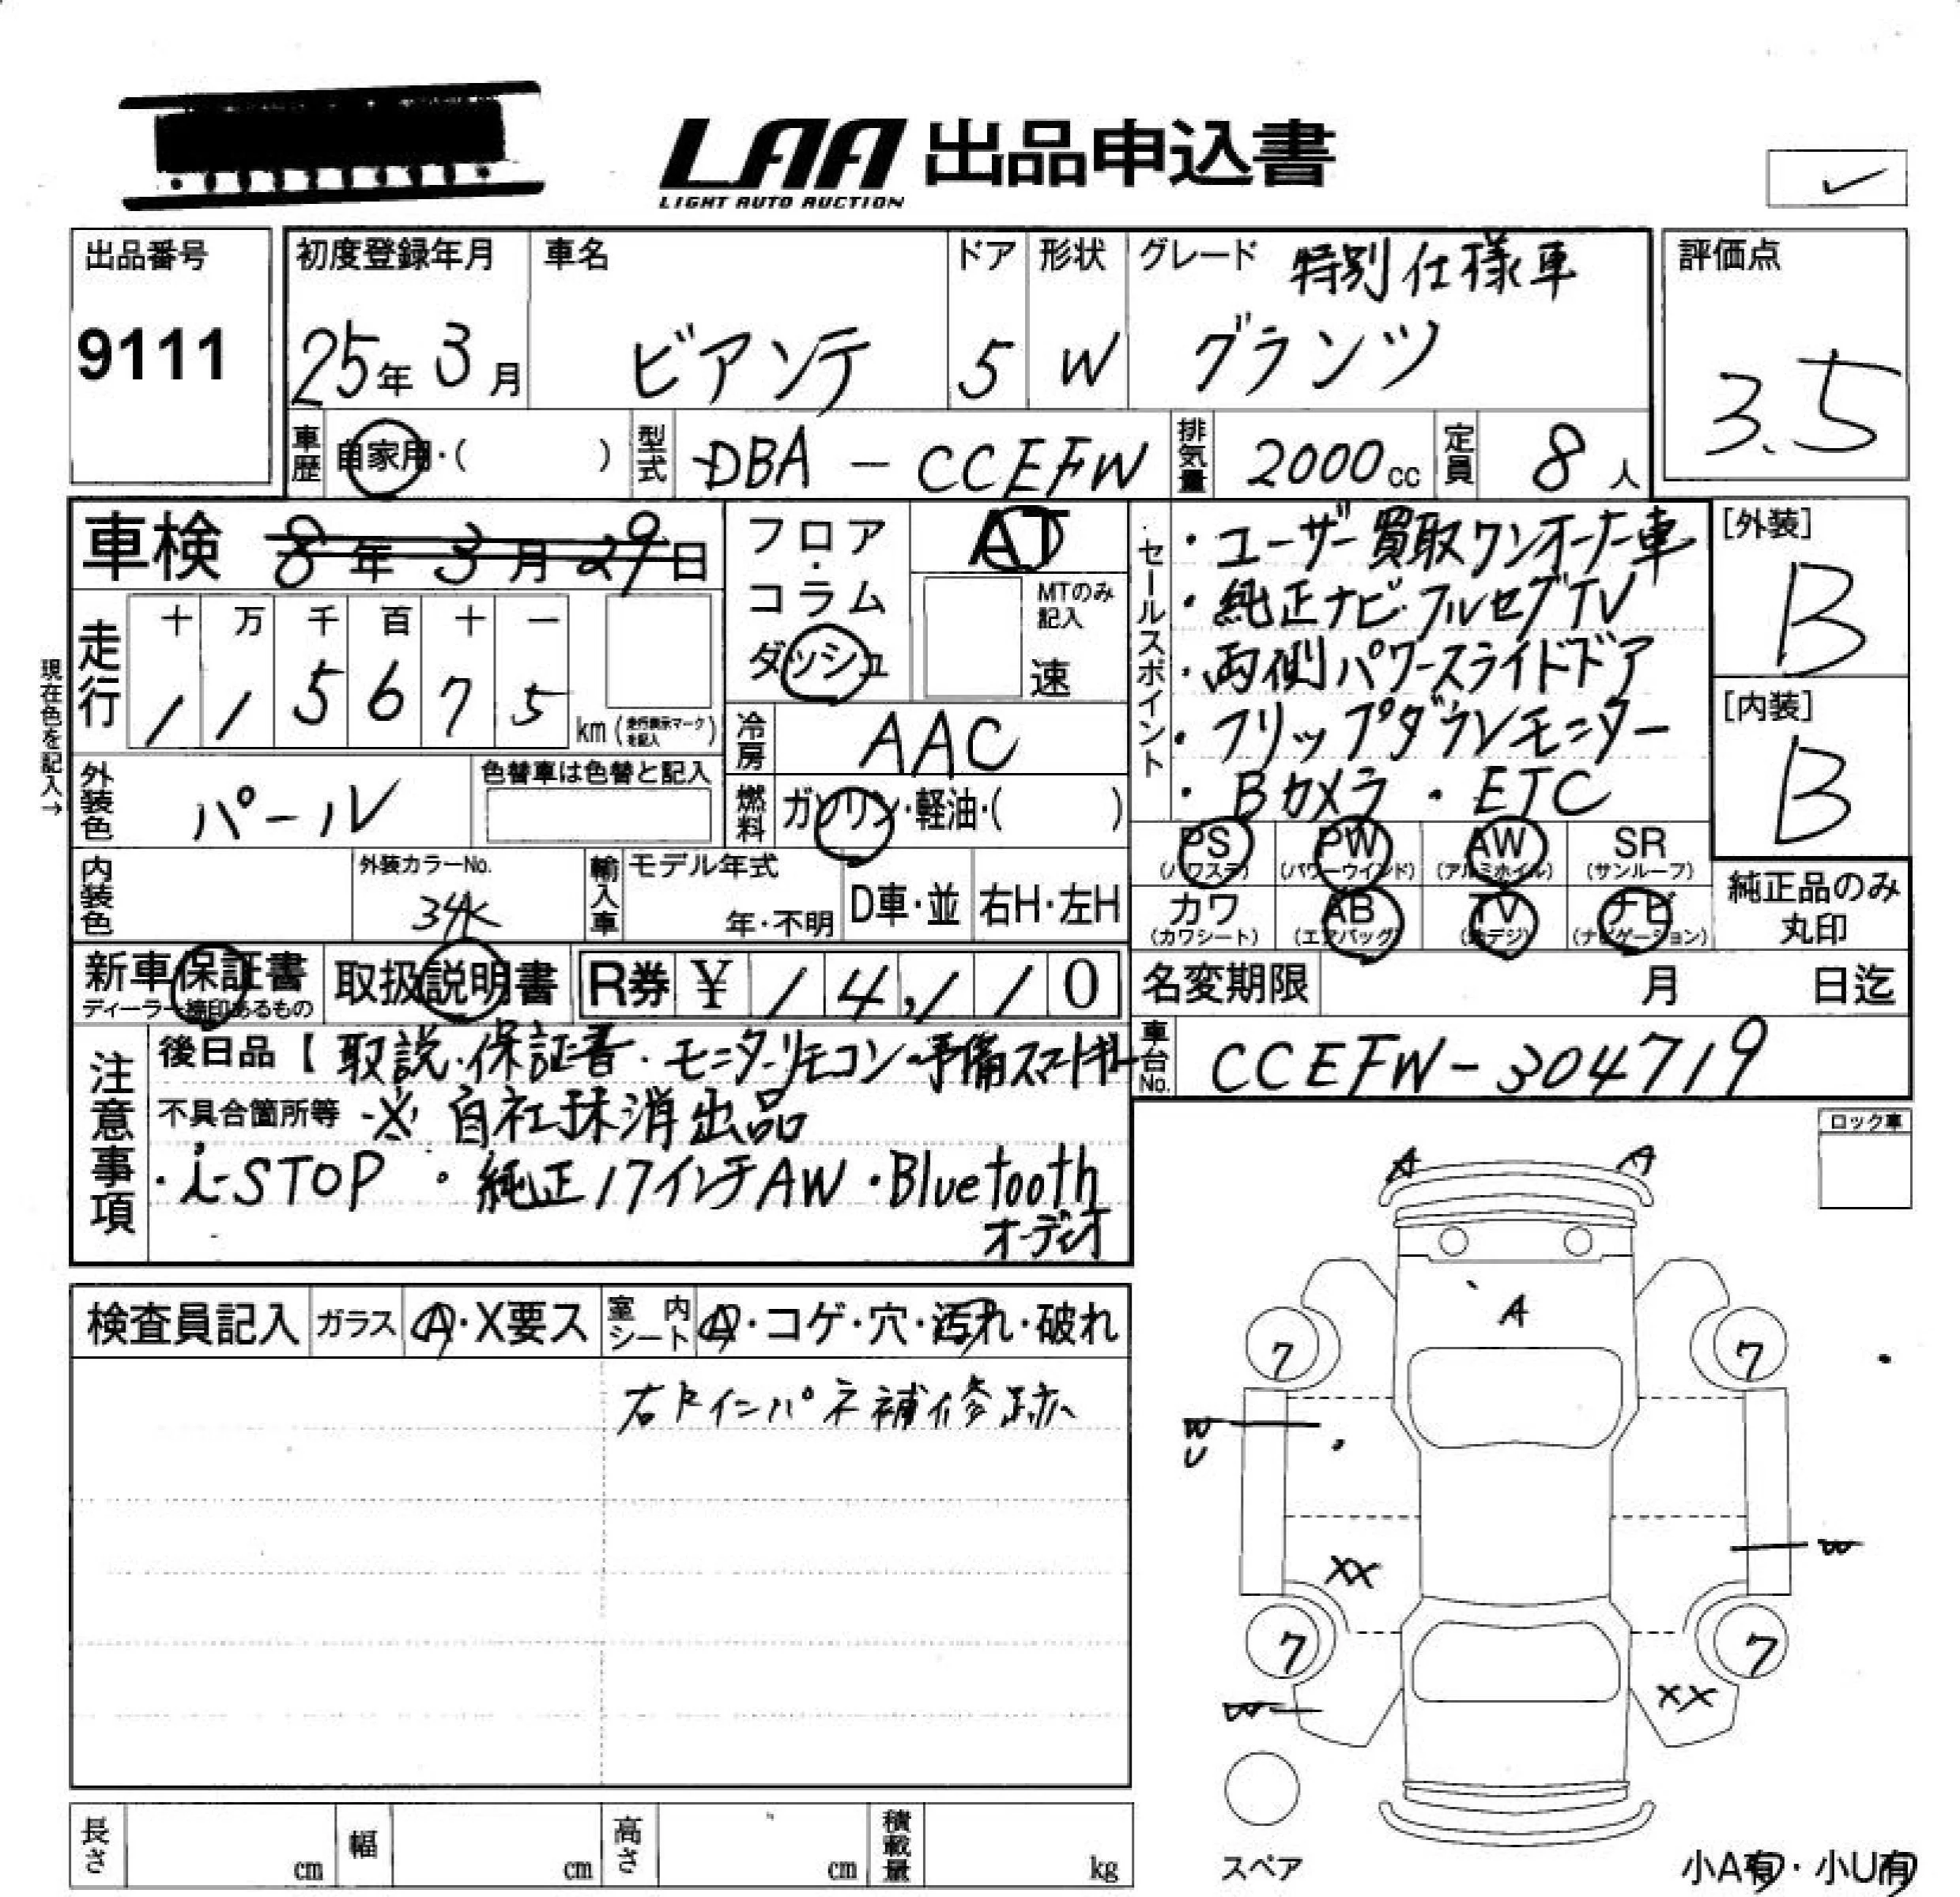 LAA 出品申込書
LIGHT AUTO AUCTION
✓
出品番号
9111
初度登録年月
25年 3月
車名
ビアンテ
ドア
5
形状
W
グレード 特別仕様車
グランツ
評価点
3.5
車歴 自家用・( )
型式 DBA-CCEFW
排気量 2000cc
定員 8人
車検 8年 3月 29日
走行 十 万 千 百 十 一
1 1 5 6 7 5 km (走行表示マークを記入)
現在色を記入→
フロア・コラム
ダッシュ
AT
MTのみ記入
速
冷房 AAC
燃料 ガソリン・軽油・( )
セールスポイント
・ユーザー買取ワンオーナー車
・純正ナビ・フルセグTV
・両側パワースライドドア
・フリップダウンモニター
・Bカメラ ・ETC
[外装]
B
[内装]
B
外装色 パール
色替車は色替と記入
内装色
外装カラーNo.
34K
輸入車 モデル年式
年・不明
D車・並
右H・左H
PS (パワステ)
PW (パワーウインド)
AW (アルミホイル)
SR (サンルーフ)
カワ (カワシート)
AB (エアバッグ)
TV (地デジ)
ナビ (ナビゲーション)
純正品のみ
丸印
新車保証書
取扱説明書
R券 ¥ 14,110
名変期限 月 日迄
車台No. CCEFW-304719
注意事項
後日品【取説・保証書・モニターリモコン・予備スマートキー
不具合箇所等 ※自社抹消出品
・i-STOP ・純正17インチAW ・Bluetooth
オーディオ
ロック車
検査員記入
ガラス A・X要ス
室内シート A・コゲ・穴・汚れ・破れ
右Fインパネ補修跡
A A
A
7 7
W
U
XX
W
7 7
W
XX
スペア
小A有・小U有
長さ cm
幅 cm
高さ cm
積載量 kg